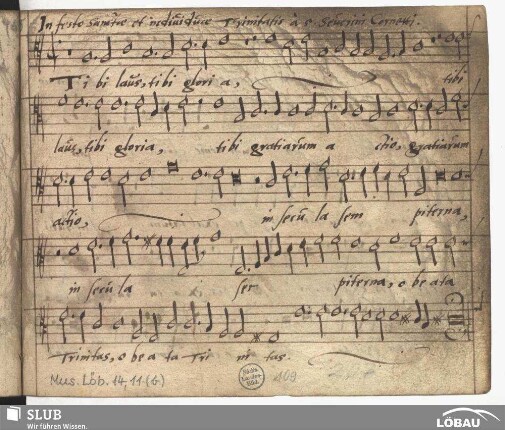 In festo sanctae et individuae Trinitatis à 5. Severini Cornetti.
Ti bi laus, tibi glori a, tibi
laus, tibi gloria, tibi gratiarum a ctio, gratiarum
actio, in secu la sem piterna,
in secu la piterna, o be ata
Trinitas, o be a ta Tri ni tas.
Mus. Löb. 14, 11 (6)
109
SLUB
Wir führen Wissen.
LÖBAU